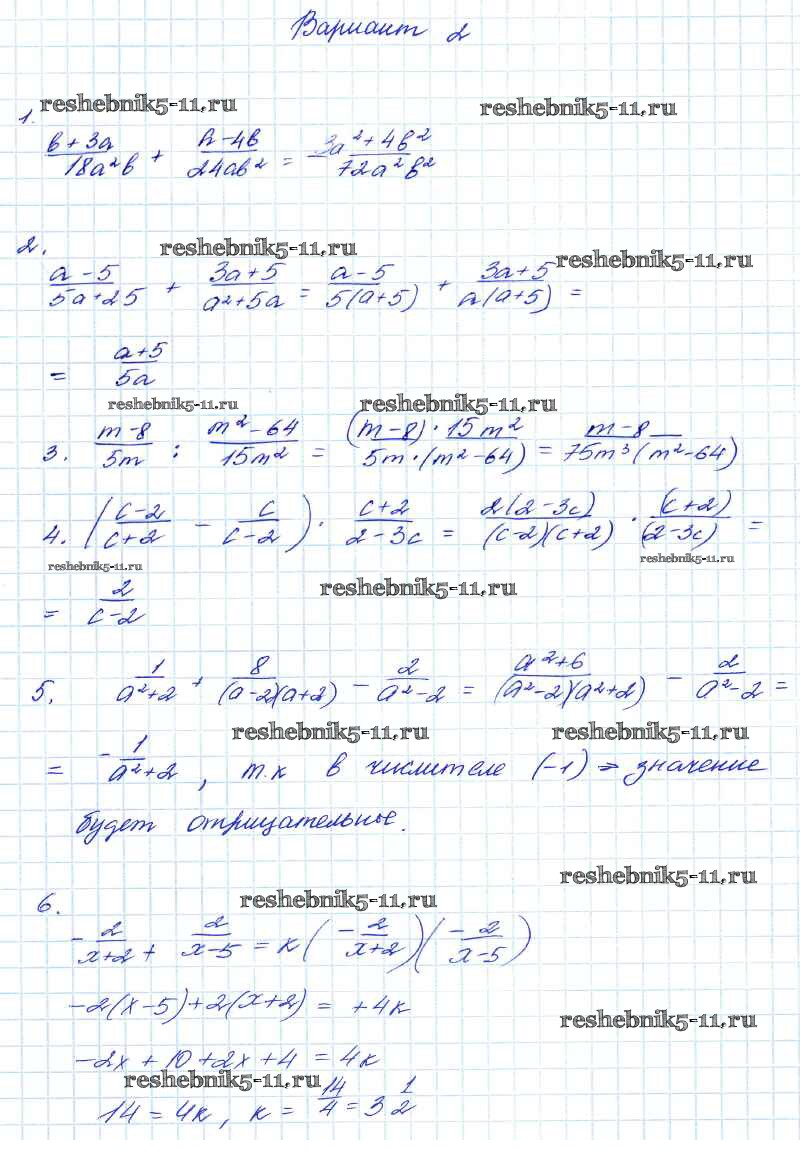 Вариант 2
reshebnik5-11.ru reshebnik5-11.ru
1.
(в+3a)/(18a²в) + (a-4в)/(24aв²) = (3a²+4в²)/(72a²в²)
2. reshebnik5-11.ru reshebnik5-11.ru
(a-5)/(5a+25) + (3a+5)/(a²+5a) = (a-5)/(5(a+5)) + (3a+5)/(a(a+5)) =
= (a+5)/(5a)
reshebnik5-11.ru reshebnik5-11.ru
3. (m-8)/(5m) : (m²-64)/(15m²) = ((m-8)·15m²)/(5m·(m²-64)) = (m-8)/(75m³(m²-64))
4. ((c-2)/(c+2) - c/(c-2)) · (c+2)/(2-3c) = (2(2-3c))/((c-2)(c+2)) · (c+2)/(2-3c) =
reshebnik5-11.ru reshebnik5-11.ru
reshebnik5-11.ru
= 2/(c-2)
5. 1/(a²+2) + 8/((a-2)(a+2)) - 2/(a²-2) = (a²+6)/((a²-2)(a²+2)) - 2/(a²-2) =
reshebnik5-11.ru reshebnik5-11.ru
= -1/(a²+2), т.к в числителе (-1) ⇒ значение
будет отрицательные.
reshebnik5-11.ru
6. reshebnik5-11.ru
-2/(x+2) + 2/(x-5) = к(-2/(x+2))(-2/(x-5))
-2(x-5)+2(x+2) = +4к
reshebnik5-11.ru
-2x+10+2x+4 = 4к
reshebnik5-11.ru
14 = 4к, к = 14/4 = 3 1/2